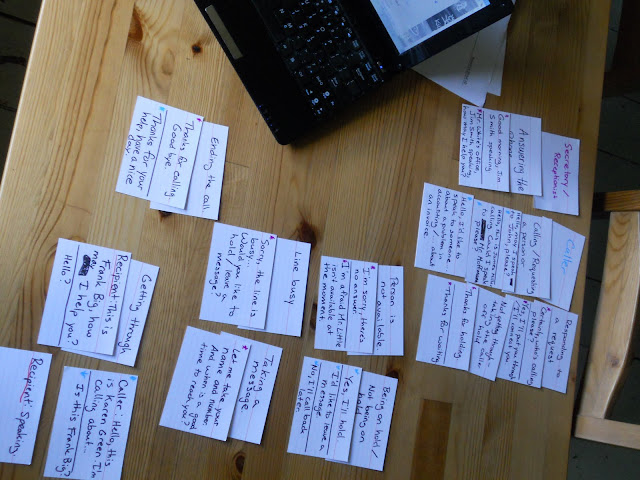 Secretary /
Receptionist
Answering the
phone
Good morning, Jim
Smith speaking
Mr White's office,
Jim Smith speaking,
how may I help you?
Caller
Calling / Requesting
a person
Hello, I'd like to
speak to someone
about a problem in
accounting / about
an invoice.
Responding to
a request
Certainly, who's calling
please?
Yes, I'll put you through
Thanks for holding
Thanks for waiting
Ending the call.
Thanks for calling.
Good bye.
Thanks for your
help, have a nice
day.
Line busy
Sorry, the line is
busy.
Would you like to
hold / leave a
message?
Person is
not available
I'm sorry, there's
no answer.
I'm afraid Mr. Little
isn't available at
the moment
Being on hold /
Not being on
hold
Yes, I'll hold.
I'd like to leave a
message
No, I'll call back
later
Taking a
message
Let me take your
name and number
And when is a good
time to reach you?
Getting through
Recipient: This is
Frank Big, how
may I help you?
Hello?
Caller: Hello, this
is Karen Green. I'm
Calling about...
Is this Frank Big?
Recipient: Speaking.